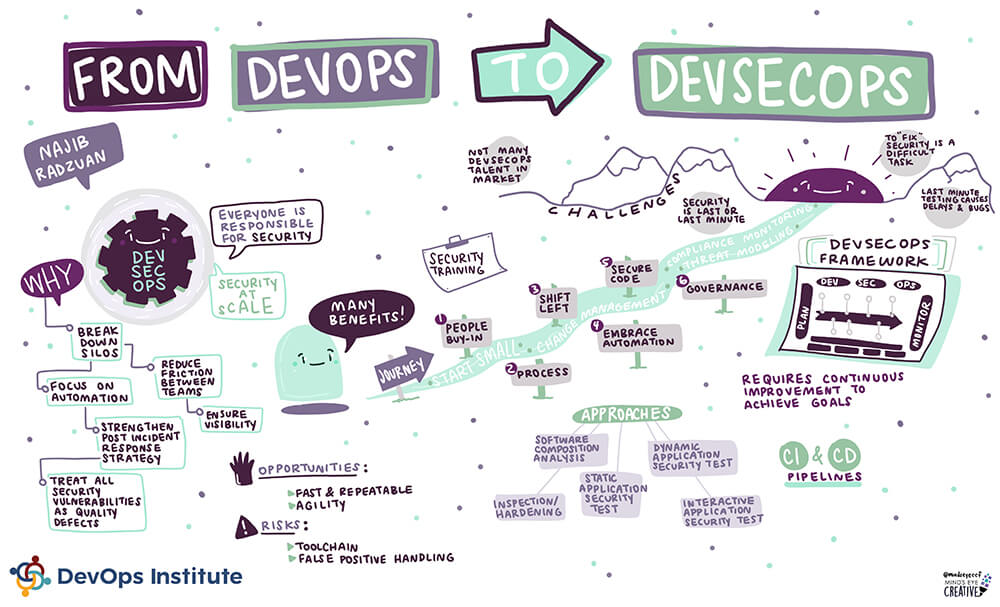 FROM DEVOPS TO DEVSECOPS
NAJIB
RADZUAN
DEV
SEC
OPS
EVERYONE IS
RESPONSIBLE
FOR SECURITY
SECURITY
AT
SCALE
WHY
BREAK
DOWN
SILOS
REDUCE
FRICTION
BETWEEN
TEAMS
FOCUS ON
AUTOMATION
ENSURE
VISIBILITY
STRENGTHEN
POST INCIDENT
RESPONSE
STRATEGY
TREAT ALL
SECURITY
VULNERABILITIES
AS QUALITY
DEFECTS
MANY
BENEFITS!
OPPORTUNITIES:
FAST & REPEATABLE
AGILITY
RISKS:
TOOLCHAIN
FALSE POSITIVE HANDLING
SECURITY
TRAINING
JOURNEY
START SMALL
CHANGE MANAGEMENT
COMPLIANCE MONITORING
THREAT MODELING
1
PEOPLE
BUY-IN
2
PROCESS
3
SHIFT
LEFT
4
EMBRACE
AUTOMATION
5
SECURE
CODE
6
GOVERNANCE
NOT MANY
DEVSECOPS
TALENT IN
MARKET
CHALLENGES
SECURITY
IS LAST OR
LAST MINUTE
TO "FIX"
SECURITY IS A
DIFFICULT
TASK
LAST MINUTE
TESTING CAUSES
DELAYS & BUGS
DEVSECOPS
FRAMEWORK
DEV SEC OPS
PLAN
MONITOR
REQUIRES CONTINUOUS
IMPROVEMENT TO
ACHIEVE GOALS
APPROACHES
SOFTWARE
COMPOSITION
ANALYSIS
DYNAMIC
APPLICATION
SECURITY TEST
INSPECTION/
HARDENING
STATIC
APPLICATION
SECURITY
TEST
INTERACTIVE
APPLICATION
SECURITY TEST
CI & CD
PIPELINES
DevOps Institute
MIND'S EYE
CREATIVE